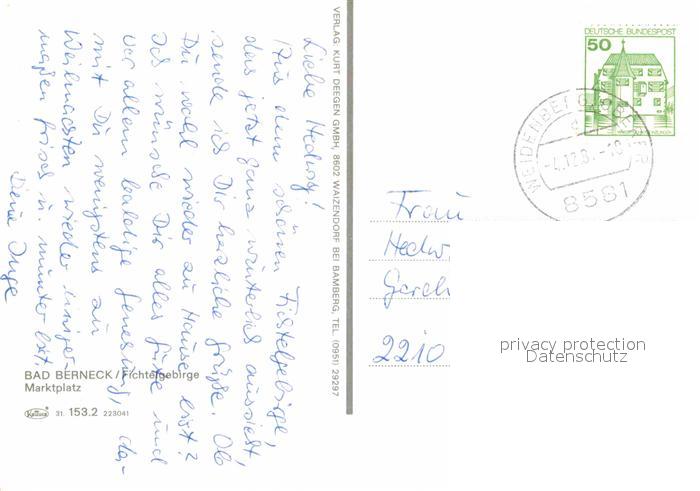 Liebe Hedwig!
Aus dem schönen Fichtelgebirge,
das jetzt ganz winterlich aussieht,
sende ich Dir herzliche Grüße. Ob
Du wohl wieder zu Hause bist?
Ich wünsche Dir alles Gute und
vor allem baldige Genesung, da-
mit Du wenigstens zu
Weihnachten wieder einiger-
maßen frisch u. munter bist.
Deine Inge
BAD BERNECK / Fichtelgebirge
Marktplatz
31. 153.2 223041
VERLAG: KURT DEEGEN GMBH, 8602 WAIZENDORF BEI BAMBERG, TEL. (0951) 29297
DEUTSCHE BUNDESPOST
50
WEIDENBERG
-4.12.8 -18
8581
Frau
Hedw
2210
privacy protection
Datenschutz